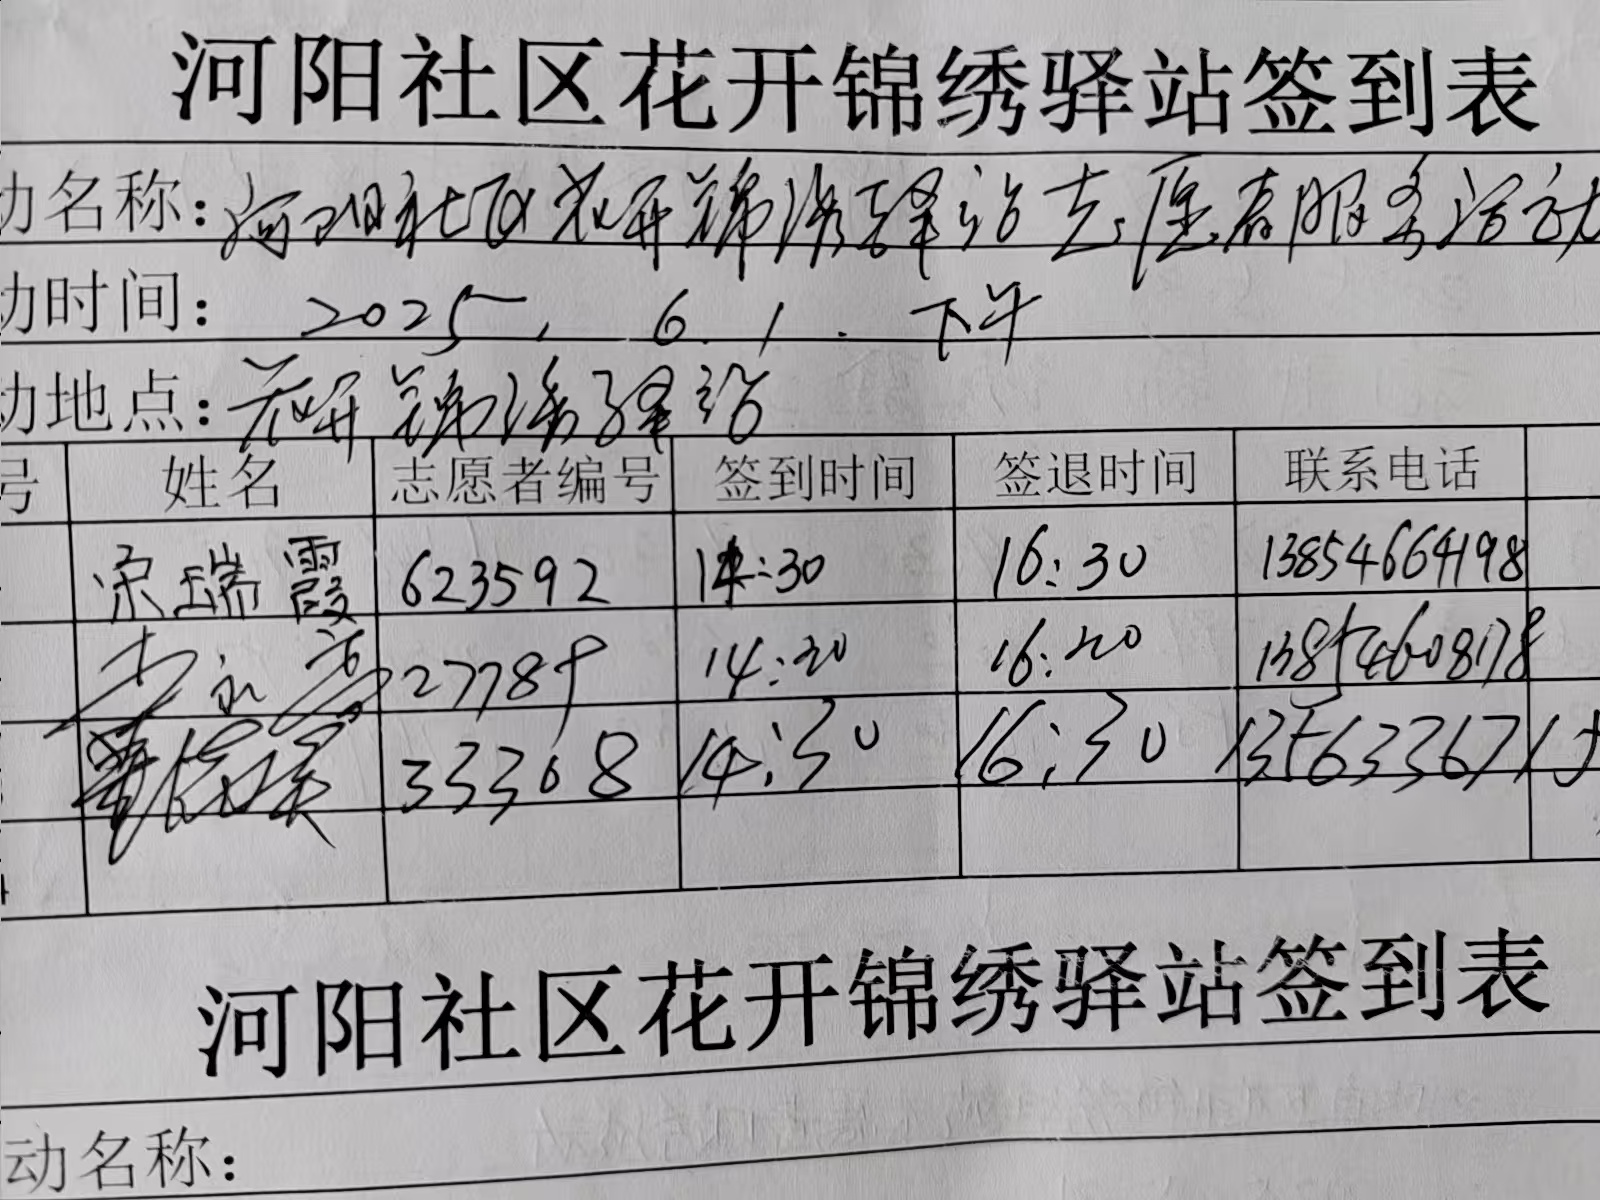 河阳社区花开锦绣驿站签到表
动名称：河阳社区花开锦绣驿站志愿者服务活动
动时间：2025.6.1.下午
动地点：花开锦绣驿站
号 姓名 志愿者编号 签到时间 签退时间 联系电话
宋瑞霞 623592 14:30 16:30 13854664198
永芳 277789 14:30 16:30 13854608178
33308 14:30 16:30 1356336715
河阳社区花开锦绣驿站签到表
动名称：